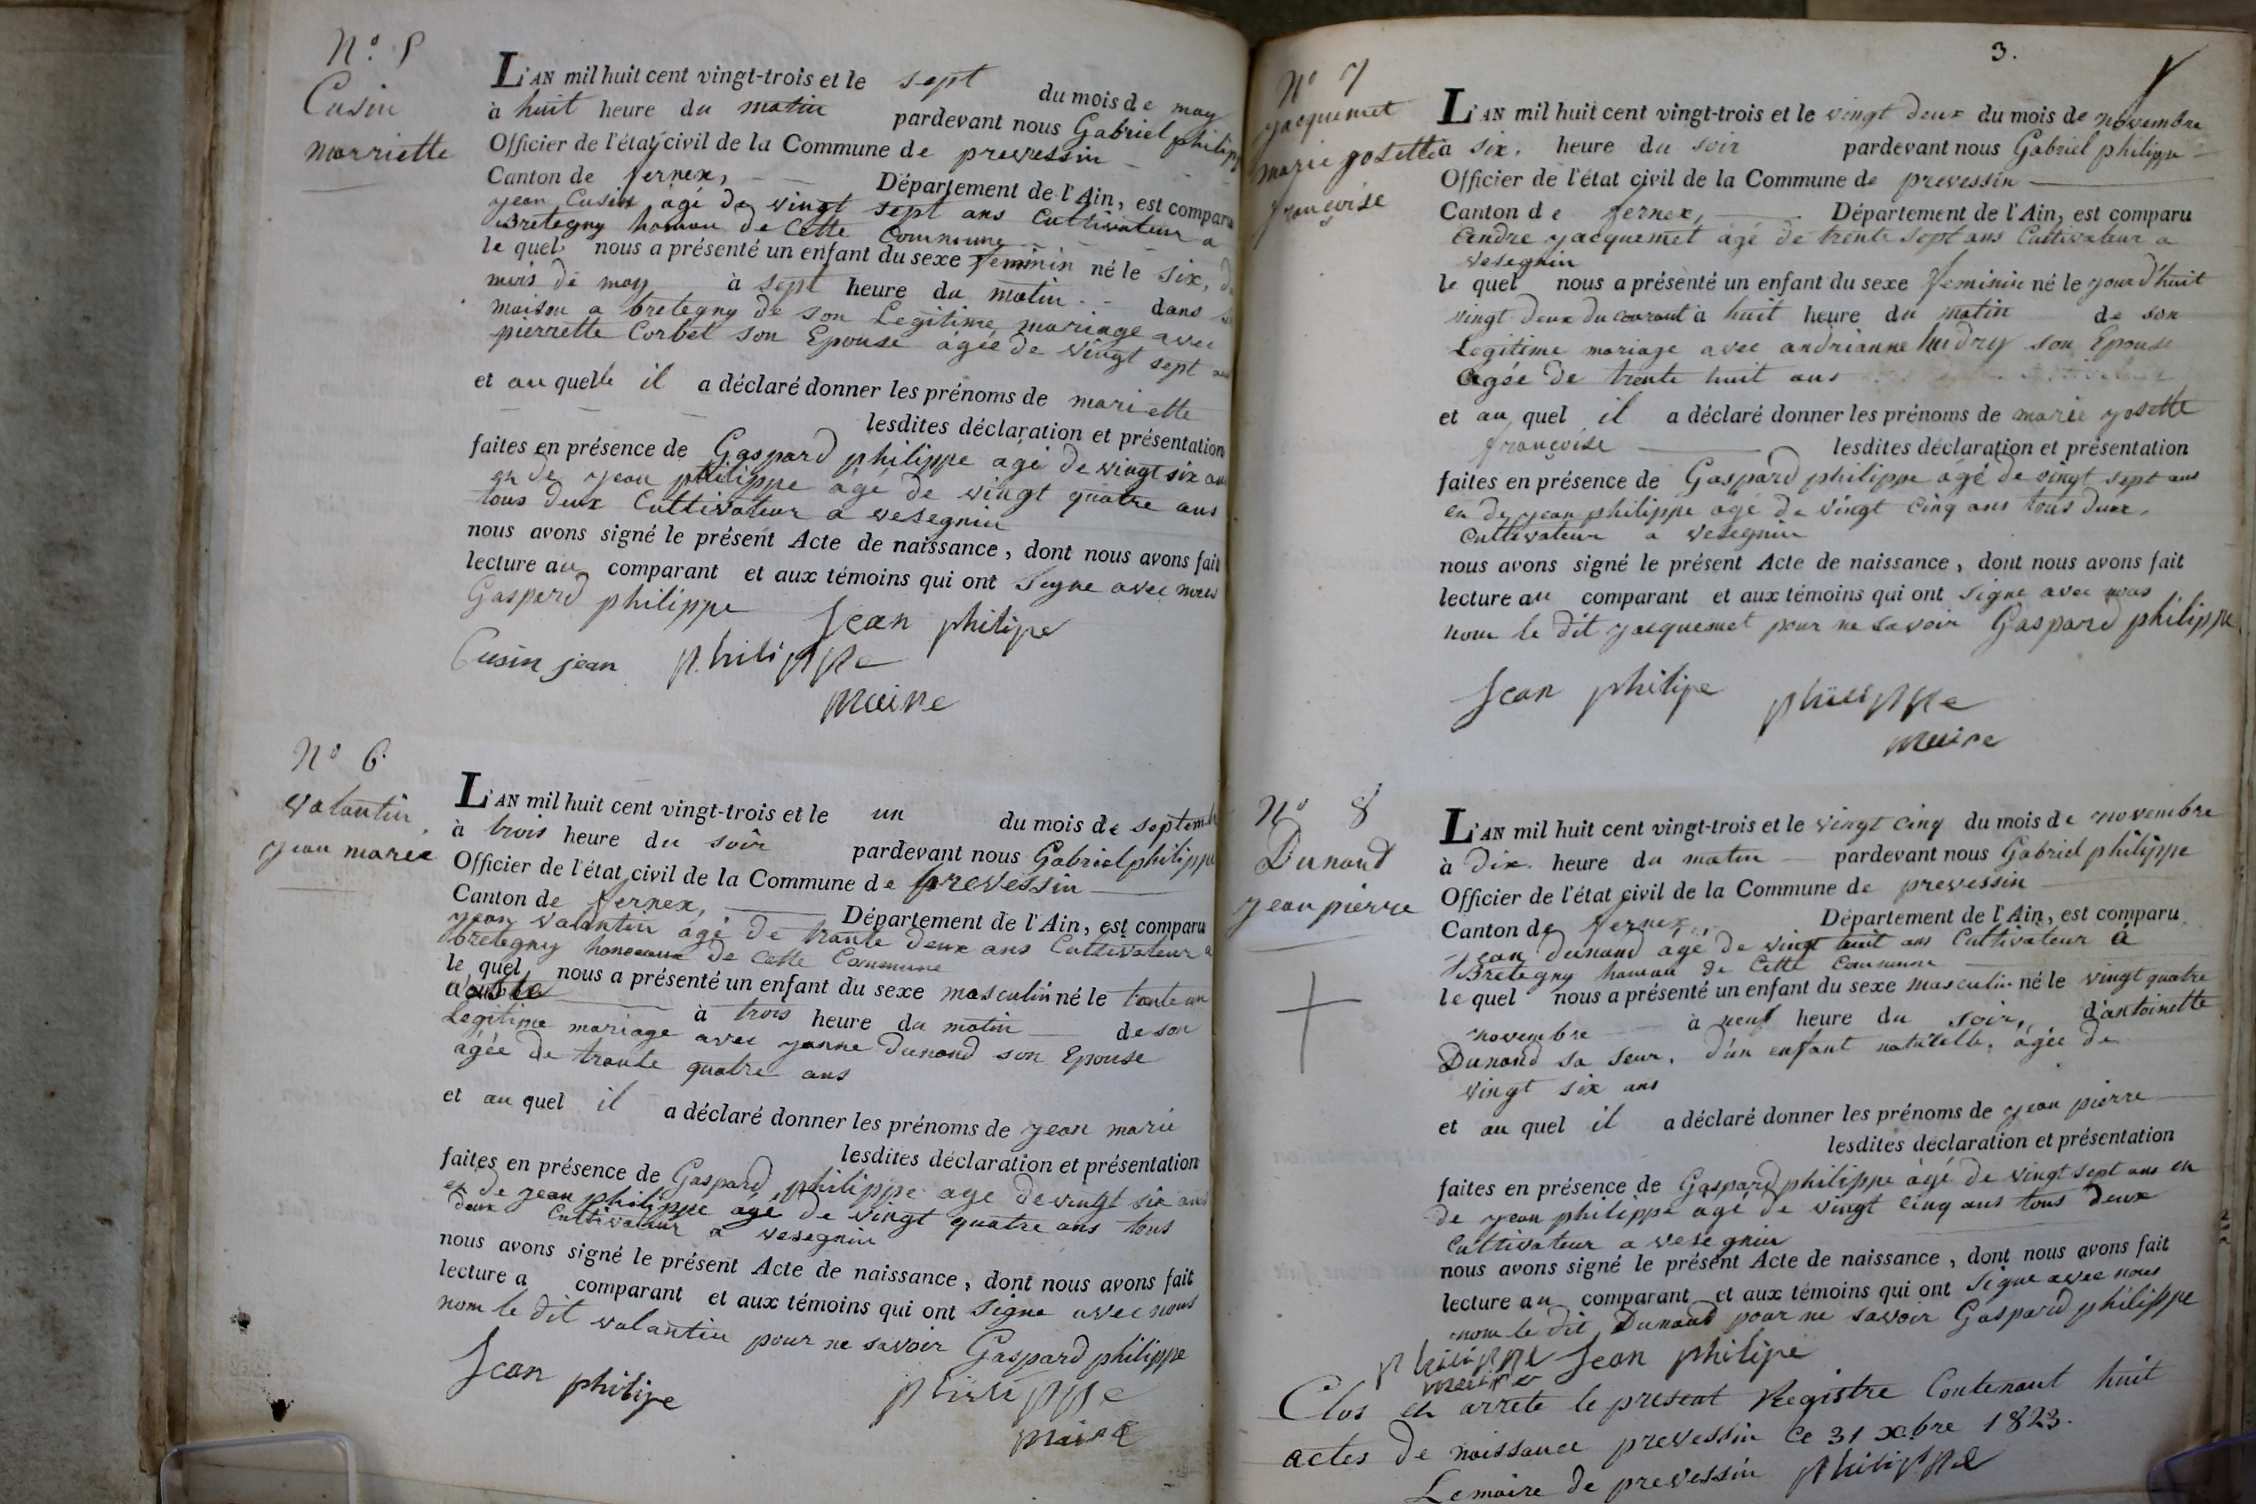 N.º 5
Cusin
marriette
L'AN mil huit cent vingt-trois et le sept du mois de may
à huit heure du matin pardevant nous Gabriel philippe
Officier de l'état civil de la Commune de prevessin
Canton de fernex, Département de l'Ain, est comparu
jean Cusin agé de vingt sept ans Cultivateur a
Bretegny hameau de Cette Commune
le quel nous a présenté un enfant du sexe feminin né le six, du
mois de may à sept heure du matin dans sa
maison a bretegny de son Legitime mariage avec
pierrette Corbet son Epouse agée de vingt sept ans
et au quelle il a déclaré donner les prénoms de mariette
lesdites déclaration et présentation
faites en présence de Gaspard philippe agé de vingt six ans
en de jean philippe agé de vingt quatre ans
tous deux Cultivateur a vesegnin
nous avons signé le présent Acte de naissance, dont nous avons fait
lecture au comparant et aux témoins qui ont Signe avec nous
Gaspard philippe Jean philipe
Cusin jean philippe
maire
N.º 6.
valantin
jean marie
L'AN mil huit cent vingt-trois et le un du mois de septembre
à trois heure du soir pardevant nous Gabriel philippe
Officier de l'état civil de la Commune de prevessin
Canton de fernex, Département de l'Ain, est comparu
jean valantin agé de trante deux ans Cultivateur a
bretegny hameau de Cette Commune
le quel nous a présenté un enfant du sexe masculin né le tante un
d'août à trois heure du matin de son
Legitime mariage avec janne Dunand son Epouse
agée de trante quatre ans
et au quel il a déclaré donner les prénoms de jean marie
lesdites déclaration et présentation
faites en présence de Gaspard philippe age de vingt six ans
en de jean philippe agé de vingt quatre ans tous
deux Cultivateur a vesegnin
nous avons signé le présent Acte de naissance, dont nous avons fait
lecture a comparant et aux témoins qui ont signe avec nous
nom le dit valantin pour ne savoir Gaspard philippe
Jean philipe philippe
maire
3.
N.º 7
jacquemet
marie josette
françoise
L'AN mil huit cent vingt-trois et le vingt deux du mois de novembre
à six. heure du soir pardevant nous Gabriel philippe
Officier de l'état civil de la Commune de prevessin
Canton de fernex, Département de l'Ain, est comparu
andre jacquemet agé de trente sept ans Cultivateur a
vesegnin
le quel nous a présenté un enfant du sexe feminin né le jourd'huit
vingt deux du courant à huit heure du matin de son
Legitime mariage avec andrianne hudry son Epouse
agée de trente huit ans
et au quel il a déclaré donner les prénoms de marie josette
françoise lesdites déclaration et présentation
faites en présence de Gaspard philippe agé de vingt sept ans
en de jean philippe agé de vingt cinq ans tous deux,
Cultivateur a vesegnin
nous avons signé le présent Acte de naissance, dont nous avons fait
lecture au comparant et aux témoins qui ont signe avec nous
nom le dit jacquemet pour ne savoir Gaspard philippe
Jean philipe philippe
maire
N.º 8
Dunand
jean pierre
L'AN mil huit cent vingt-trois et le vingt cinq du mois de novembre
à dix. heure du matin pardevant nous Gabriel philippe
Officier de l'état civil de la Commune de prevessin
Canton de fernex, Département de l'Ain, est comparu
jean dunand agé de vingt huit ans Cultivateur à
Bretegny hameau de Cette Commune
le quel nous a présenté un enfant du sexe masculin né le vingt quatre
novembre à neuf heure du soir, d'antoinette
Dunand sa seur, d'un enfant naturelle, agée de
vingt six ans
et au quel il a déclaré donner les prénoms de jean pierre
lesdites déclaration et présentation
faites en présence de Gaspard philippe agé de vingt sept ans en
de jean philippe agé de vingt cinq ans tous deux
Cultivateur a vesegnin
nous avons signé le présent Acte de naissance, dont nous avons fait
lecture au comparant et aux témoins qui ont signe avec nous
nom le dit Dunand pour ne savoir Gaspard philippe
philippe Jean philipe
maire
Clos en arrete le present Registre Contenant huit
actes de naissance prevessin Ce 31 xbre 1823.
Lemaire de prevessin philippe